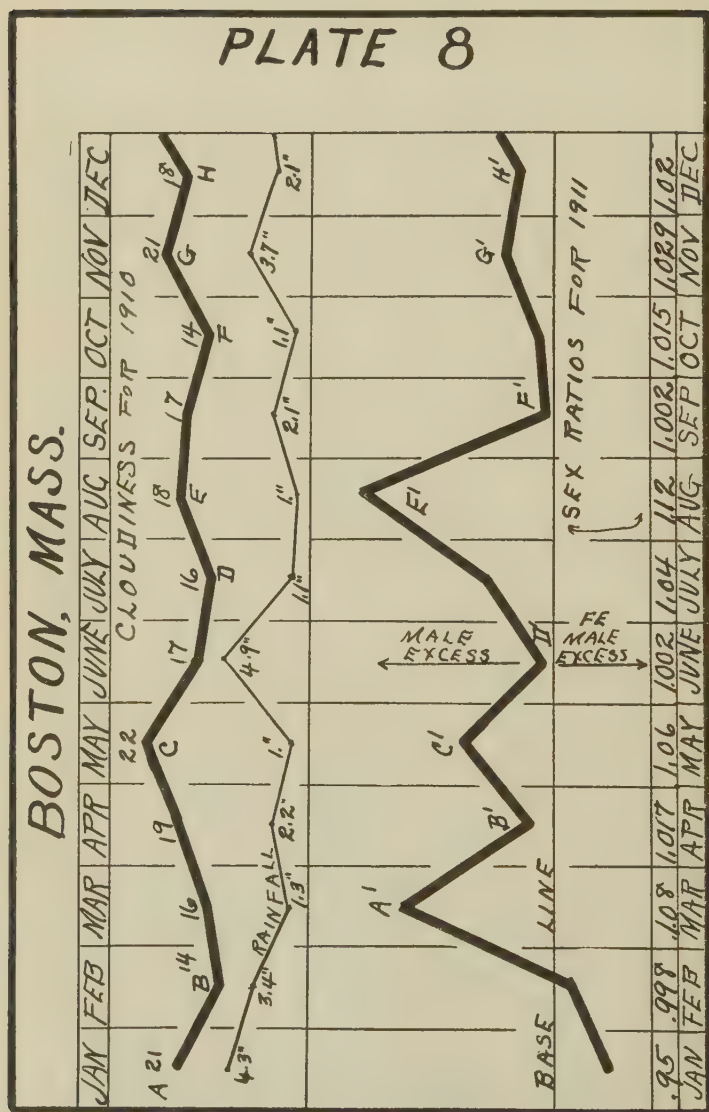 PLATE 8
BOSTON, MASS.
JAN FEB MAR APR MAY JUNE JULY AUG SEP. OCT NOV DEC
CLOUDINESS FOR 1910
A 21 B 14 16 19 22 C 17 16 D 18 E 17 14 F 21 G 18 H
RAINFALL
4.3" 3.4" 1.3" 2.2" 1." 4.9" 1.1" 1." 2.1" 1.1" 3.7" 2.1"
A' B' C' D' E' F' G' H'
MALE
EXCESS
FE
MALE
EXCESS
BASE LINE
SEX RATIOS FOR 1911
.95 .998 1.08 1.017 1.06 1.002 1.04 112 1.002 1.015 1.029 1.02
JAN FEB MAR APR MAY JUNE JULY AUG SEP OCT NOV DEC